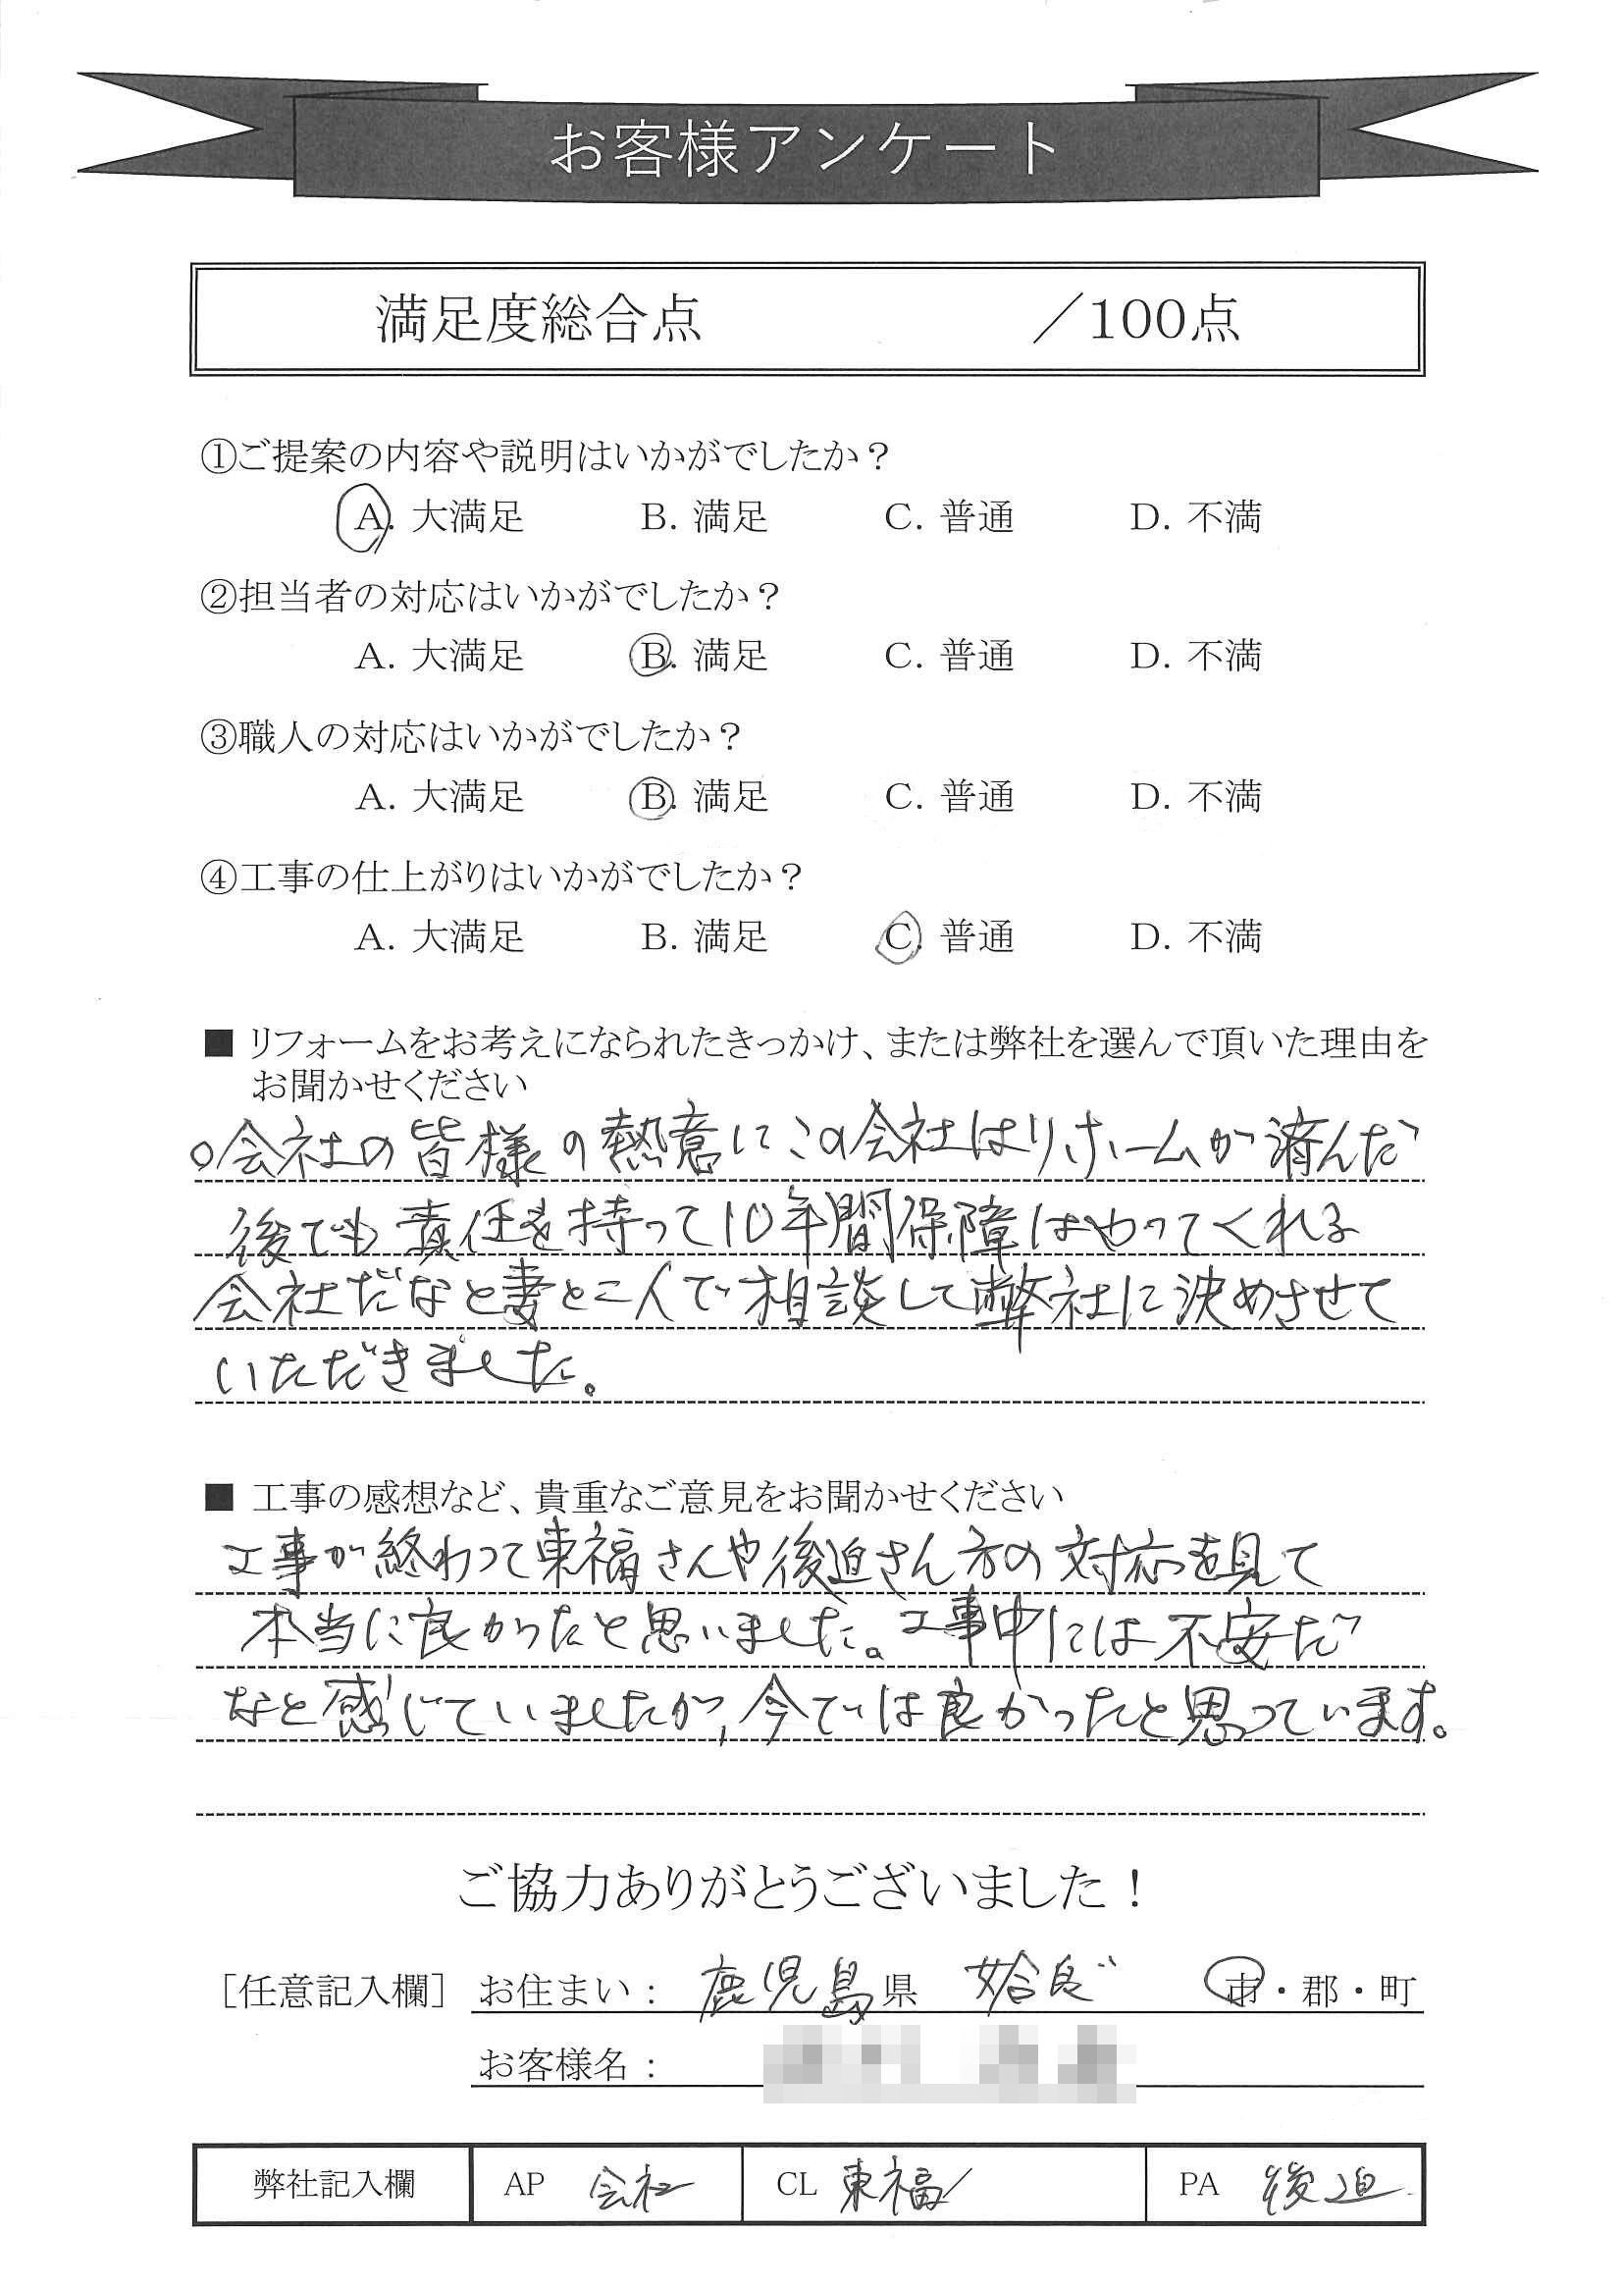 お客様アンケート
満足度総合点 ／100点
①ご提案の内容や説明はいかがでしたか？
A. 大満足 B. 満足 C. 普通 D. 不満
②担当者の対応はいかがでしたか？
A. 大満足 B. 満足 C. 普通 D. 不満
③職人の対応はいかがでしたか？
A. 大満足 B. 満足 C. 普通 D. 不満
④工事の仕上がりはいかがでしたか？
A. 大満足 B. 満足 C. 普通 D. 不満
■ リフォームをお考えになられたきっかけ、または弊社を選んで頂いた理由を
お聞かせください
○会社の皆様の熱意にこの会社はリホームが済んだ
後でも責任を持って10年間保障はやってくれる
会社だなと妻と二人で相談して弊社に決めさせて
いただきました。
■ 工事の感想など、貴重なご意見をお聞かせください
工事が終わって東福さんや後迫さん方の対応を見て
本当に良かったと思いました。工事中には不安だ
なと感じていましたが、今では良かったと思っています。
ご協力ありがとうございました！
［任意記入欄］ お住まい： 鹿児島県 姶良 市・郡・町
お客様名：
弊社記入欄 AP 会社 CL 東福 PA 後迫